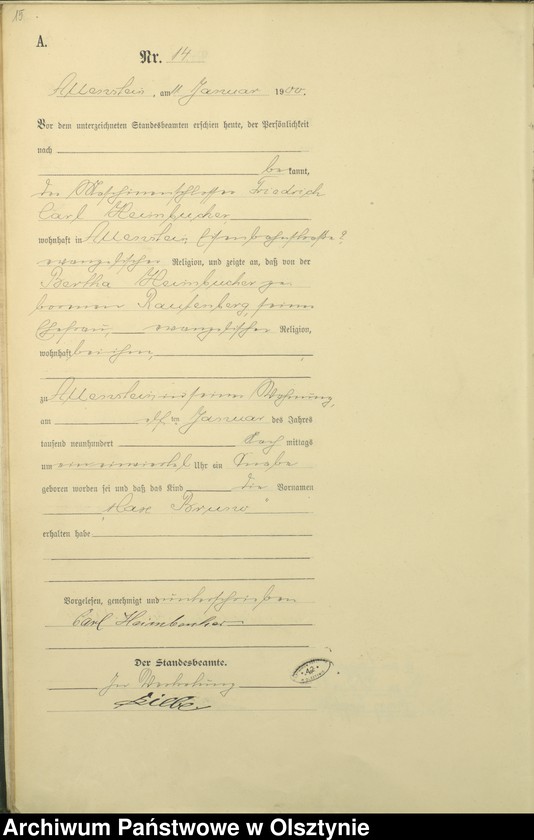 15.
A.
Nr. 14
Allenstein, am 11 Januar 1900.
Vor dem unterzeichneten Standesbeamten erschien heute, der Persönlichkeit
nach
be kannt,
der Maschinenschlosser Friedrich
Carl Heimbucher
wohnhaft in Allenstein
evangelischer Religion, und zeigte an, daß von der
Bertha Heimbucher ge
borenen Rautenberg, seiner
Ehefrau, evangelischer Religion,
wohnhaft bei ihm,
zu Allenstein in seiner Wohnung,
am ten Januar des Jahres
tausend neunhundert Nach mittags
um ein einviertel Uhr ein Knabe
geboren worden sei und daß das Kind die Vornamen
„Max Bruno“
erhalten habe
Vorgelesen, genehmigt und unterschrieben
Carl Heimbucher
Der Standesbeamte.
In Vertretung
Archiwum Państwowe w Olsztynie